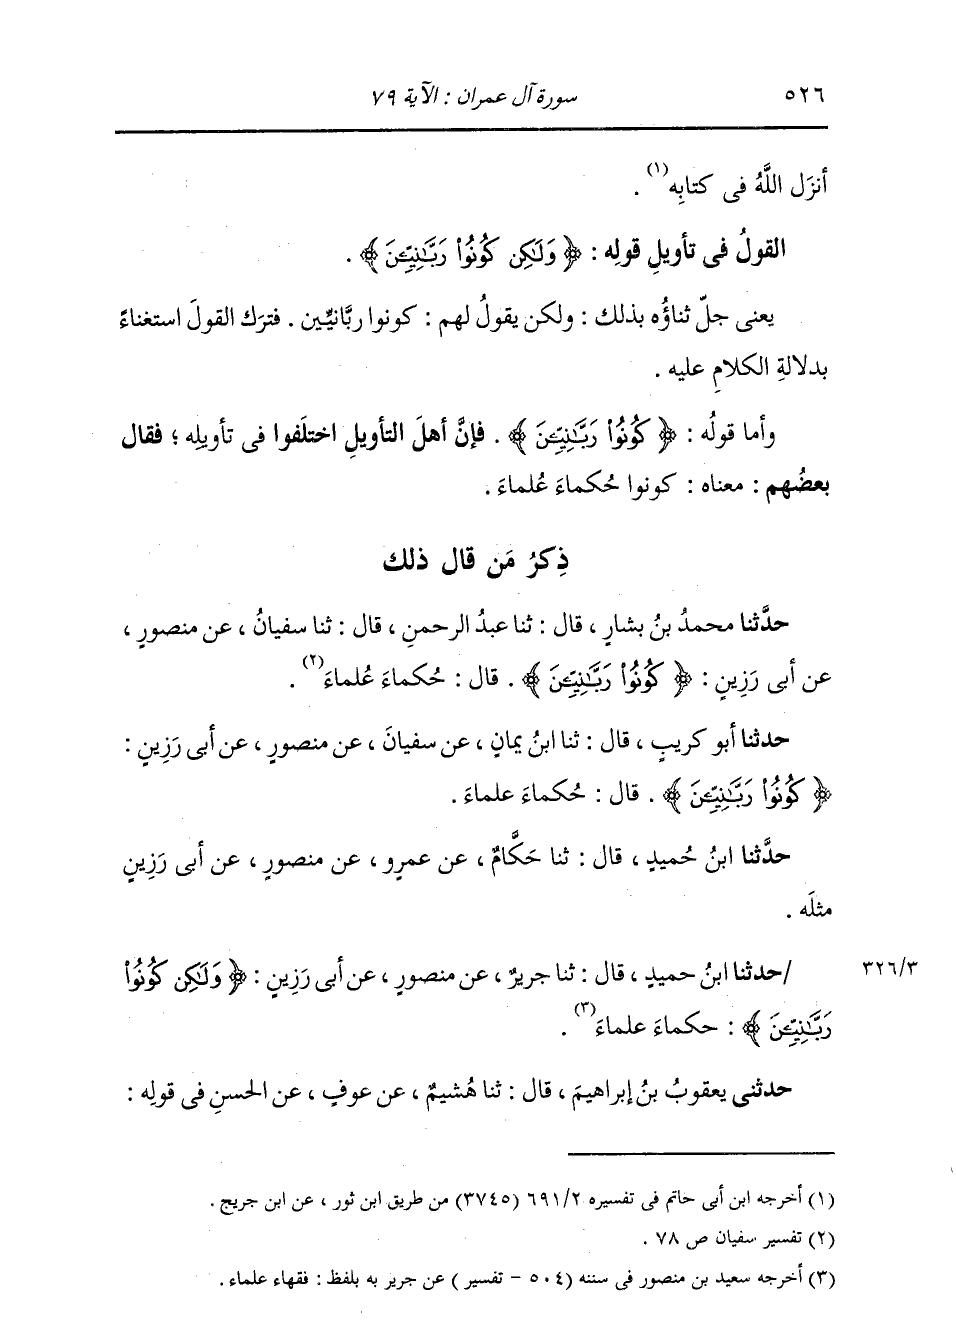 ٥٢٦ سورة آل عمران : الآية ٧٩
أنزَل اللَّهُ فى كتابِه(١) .
القولُ فى تأويلِ قولِه : ﴿ وَلَٰكِن كُونُوا۟ رَبَّٰنِيِّـۧنَ ﴾ .
يعنى جلّ ثناؤُه بذلك : ولكن يقولُ لهم : كونوا ربَّانيِّين . فترَك القولَ استغناءً
بدلالةِ الكلامِ عليه .
وأما قولُه : ﴿ كُونُوا۟ رَبَّٰنِيِّـۧنَ ﴾ . فإنَّ أهلَ التأويلِ اختلَفوا فى تأويلِه ؛ فقال
بعضُهم : معناه : كونوا حُكماءَ عُلماءَ .
ذِكرُ مَن قال ذلك
حدَّثنا محمدُ بنُ بشارٍ ، قال : ثنا عبدُ الرحمنِ ، قال : ثنا سفيانُ ، عن منصورٍ ،
عن أبى رَزِينٍ : ﴿ كُونُوا۟ رَبَّٰنِيِّـۧنَ ﴾ . قال : حُكماءَ عُلماءَ(٢) .
حدثنا أبو كريبٍ ، قال : ثنا ابنُ يمانٍ ، عن سفيانَ ، عن منصورٍ ، عن أبى رَزِينٍ :
﴿ كُونُوا۟ رَبَّٰنِيِّـۧنَ ﴾ . قال : حُكماءَ علماءَ .
حدَّثنا ابنُ حُميدٍ ، قال : ثنا حَكَّامٌ ، عن عمرٍو ، عن منصورٍ ، عن أبى رَزِينٍ
مثلَه .
٣٢٦/٣ /حدثنا ابنُ حميدٍ ، قال : ثنا جريرٌ ، عن منصورٍ ، عن أبى رَزِينٍ : ﴿ وَلَٰكِن كُونُوا۟
رَبَّٰنِيِّـۧنَ ﴾ : حكماءَ علماءَ(٣) .
حدثنى يعقوبُ بنُ إبراهيمَ ، قال : ثنا هُشيمٌ ، عن عوفٍ ، عن الحسنِ فى قولِه :
(١) أخرجه ابن أبى حاتم فى تفسيره ٦٩١/٢ (٣٧٤٥) من طريق ابن ثور ، عن ابن جريج .
(٢) تفسير سفيان ص ٧٨ .
(٣) أخرجه سعيد بن منصور فى سننه (٥٠٤ - تفسير ) عن جرير به بلفظ : فقهاء علماء .